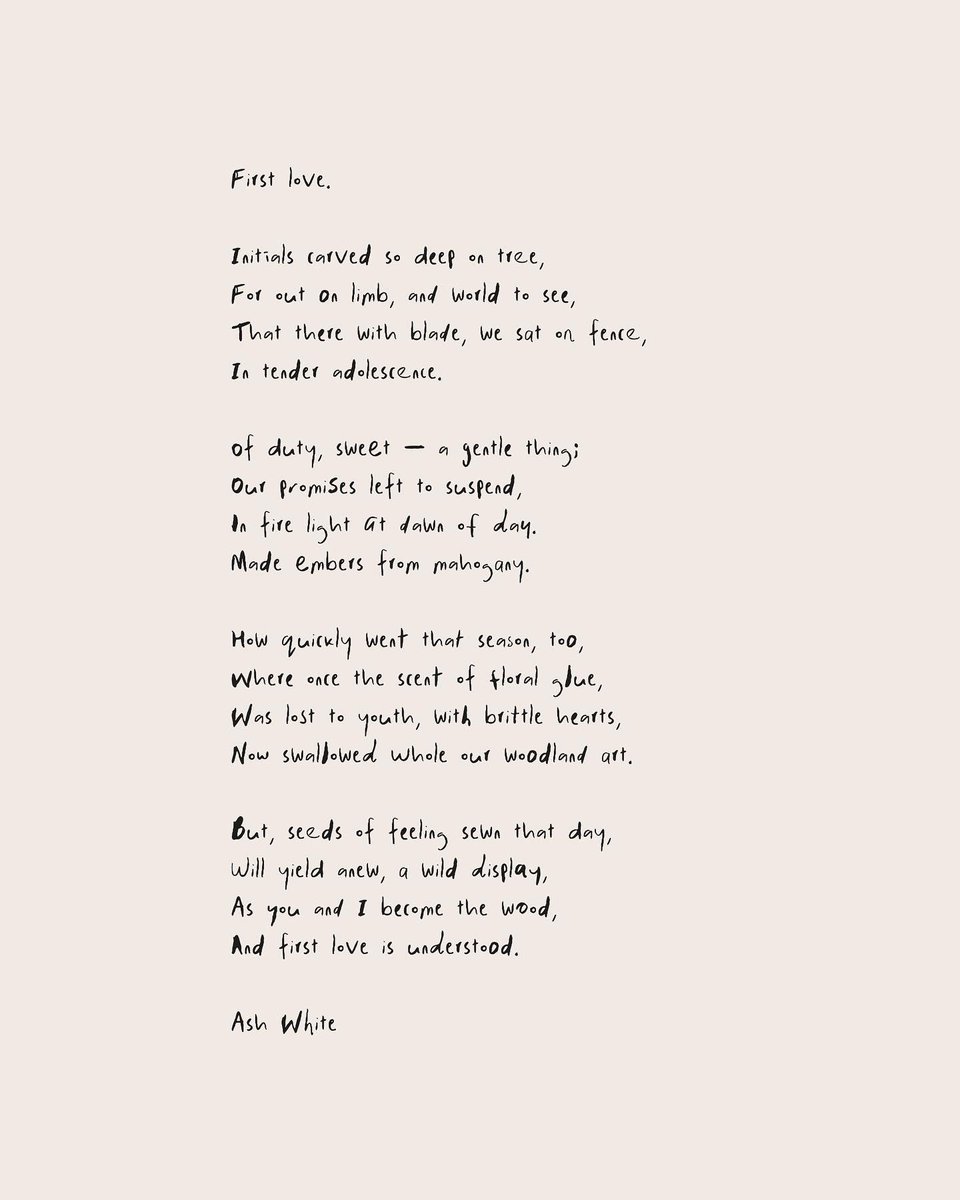 First love.
Initials carved so deep on tree,
For out on limb, and world to see,
That there with blade, we sat on fence,
In tender adolescence.
Of duty, sweet — a gentle thing;
Our promises left to suspend,
In fire light at dawn of day.
Made embers from mahogany.
How quickly went that season, too,
Where once the scent of floral glue,
Was lost to youth, with brittle hearts,
Now swallowed whole our woodland art.
But, seeds of feeling sewn that day,
Will yield anew, a wild display,
As you and I become the wood,
And first love is understood.
Ash White